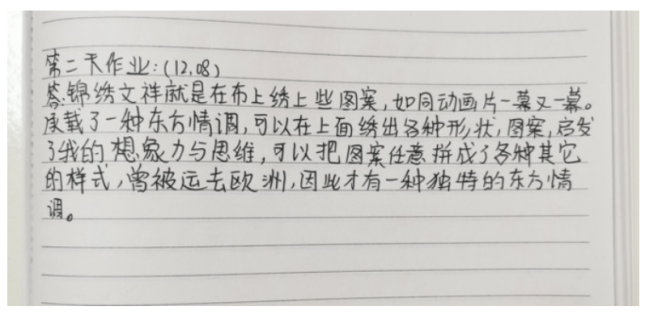 第二天作业:(12,08)
答:锦绣文祥就是在布上绣上些图案,如同动画片一幕又一幕。
承载了一种东方情调,可以在上面绣出各种形状,图案,启发
了我的想象力与思维,可以把图案任意拼成了各种其它
的样式,曾被运去欧洲,因此才有一种独特的东方情
调。